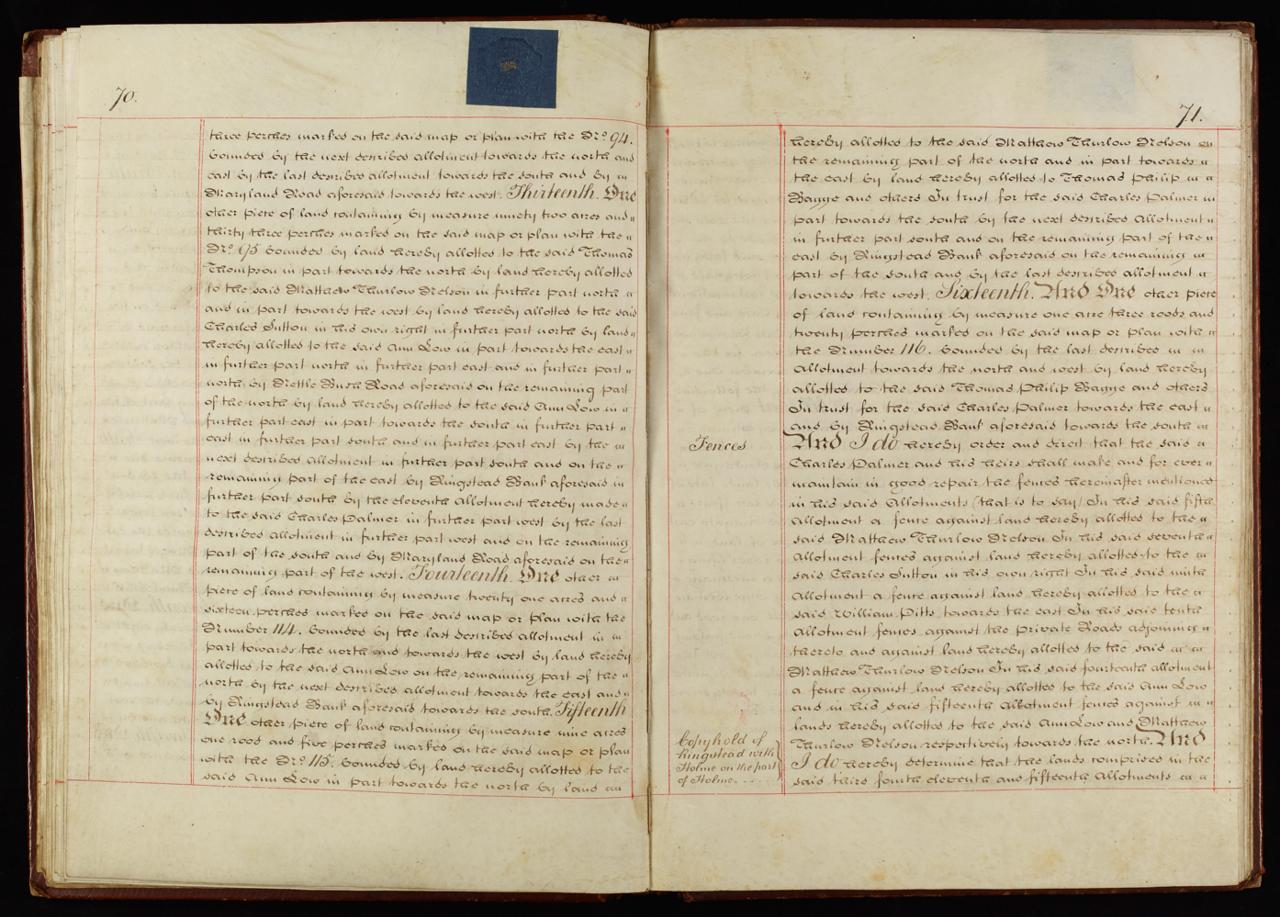 70.
three perches marked on the said map or plan with the No. 94.
bounded by the next described allotment towards the north and
east by the last described allotment towards the south and by
Maryland Road aforesaid towards the west. Thirteenth. One
other piece of land containing by measure ninety two acres and
thirty three perches marked on the said map or plan with the
No. 95 bounded by land hereby allotted to the said Thomas
Thompson in part towards the north by land hereby allotted
to the said Matthew Thurlow Nelson in further part north
and in part towards the west by land hereby allotted to the said
Charles Sutton in his own right in further part north by land
hereby allotted to the said Ann Low in part towards the east
in further part north in further part east and in further part
north by Nettle Bush Road aforesaid on the remaining part
of the north by land hereby allotted to the said Ann Low in
further part east in part towards the south in further part
east in further part south and in further part east by the
next described allotment in further part south and on the
remaining part of the east by Ringstead Bank aforesaid in
further part south by the eleventh allotment hereby made
to the said Charles Palmer in further part west by the last
described allotment in further part west and on the remaining
part of the south and by Maryland Road aforesaid on the
remaining part of the west. Fourteenth. One other
piece of land containing by measure twenty one acres and
sixteen perches marked on the said map or plan with the
Number 114. bounded by the last described allotment in
part towards the north and towards the west by land hereby
allotted to the said Ann Low on the remaining part of the
north by the next described allotment towards the east and
by Ringstead Bank aforesaid towards the south. Fifteenth
One other piece of land containing by measure nine acres
one rood and five perches marked on the said map or plan
with the No. 115. bounded by land hereby allotted to the
said Ann Low in part towards the north by land
71.
hereby allotted to the said Matthew Thurlow Nelson on
the remaining part of the north and in part towards
the east by land hereby allotted to Thomas Philip
Bagge and others In trust for the said Charles Palmer in
part towards the south by the next described Allotment
in further part south and on the remaining part of the
east by Ringstead Bank aforesaid on the remaining
part of the south and by the last described allotment
towards the west. Sixteenth. And One other piece
of land containing by measure one acre three roods and
twenty perches marked on the said map or plan with
the Number 116. bounded by the last described
Allotment towards the north and west by land hereby
allotted to the said Thomas Philip Bagge and others
In trust for the said Charles Palmer towards the east
and by Ringstead Bank aforesaid towards the south
Fences
And I do hereby order and direct that the said
Charles Palmer and his heirs shall make and for ever
maintain in good repair the fences hereinafter mentioned
in his said Allotments (that is to say) In his said fifth
Allotment a fence against land hereby allotted to the
said Matthew Thurlow Nelson In his said seventh
Allotment fences against land hereby allotted to the
said Charles Sutton in his own right In his said ninth
Allotment a fence against land hereby allotted to the
said William Pitts towards the east In his said tenth
Allotment fences against the Private Roads adjoining
thereto and against land hereby allotted to the said
Matthew Thurlow Nelson In his said fourteenth allotment
a fence against land hereby allotted to the said Ann Low
and in his said fifteenth Allotment fences against
lands hereby allotted to the said Ann Low and Matthew
Thurlow Nelson respectively towards the north. And
Copyhold of
Ringstead with
Holme on the part
of Holme.
I do hereby determine that the lands comprised in the
said third fourth eleventh and fifteenth Allotments